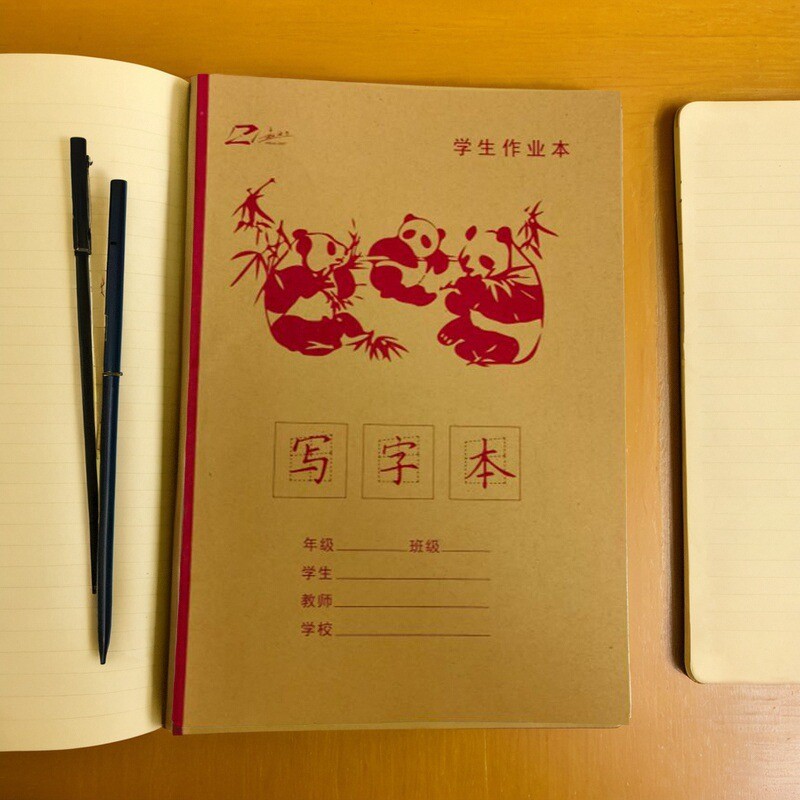 学生作业本
写字本
年级 班级
学生
教师
学校